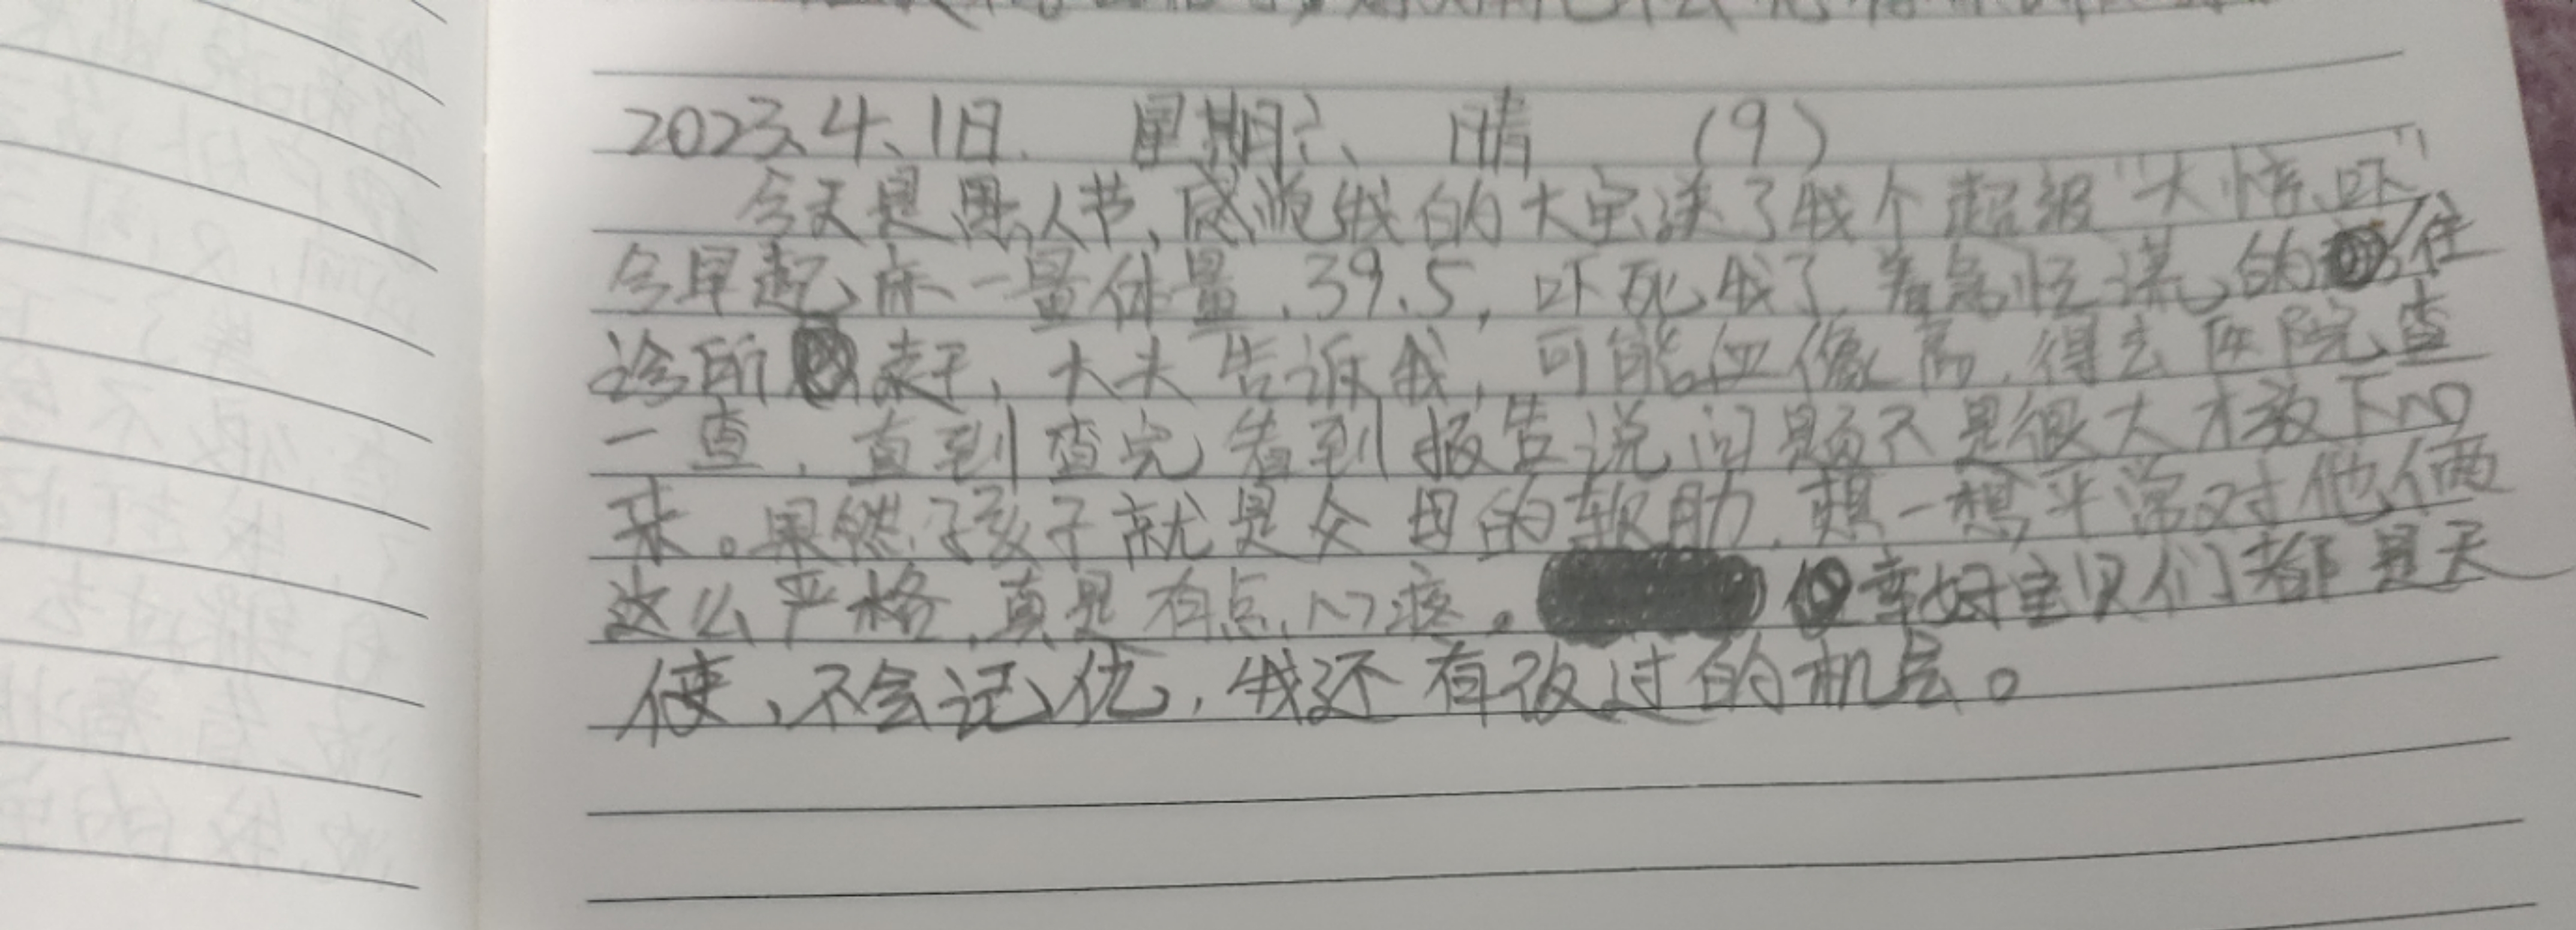 2023.4.1日. 星期六 晴 (9)
今天是愚人节,感觉我的大宝送了我个超级"大惊吓"
今早起床一量体量,39.5,吓死我了,着急慌慌的往
诊所赶,大夫告诉我,可能血像高,得去医院查
一查,直到查完看到报告说问题不是很大才放下心
来。果然孩子就是父母的软肋,想一想平常对他俩
这么严格,真是有点心疼。幸好宝贝们都是天
使,不会记仇,我还有改过的机会。